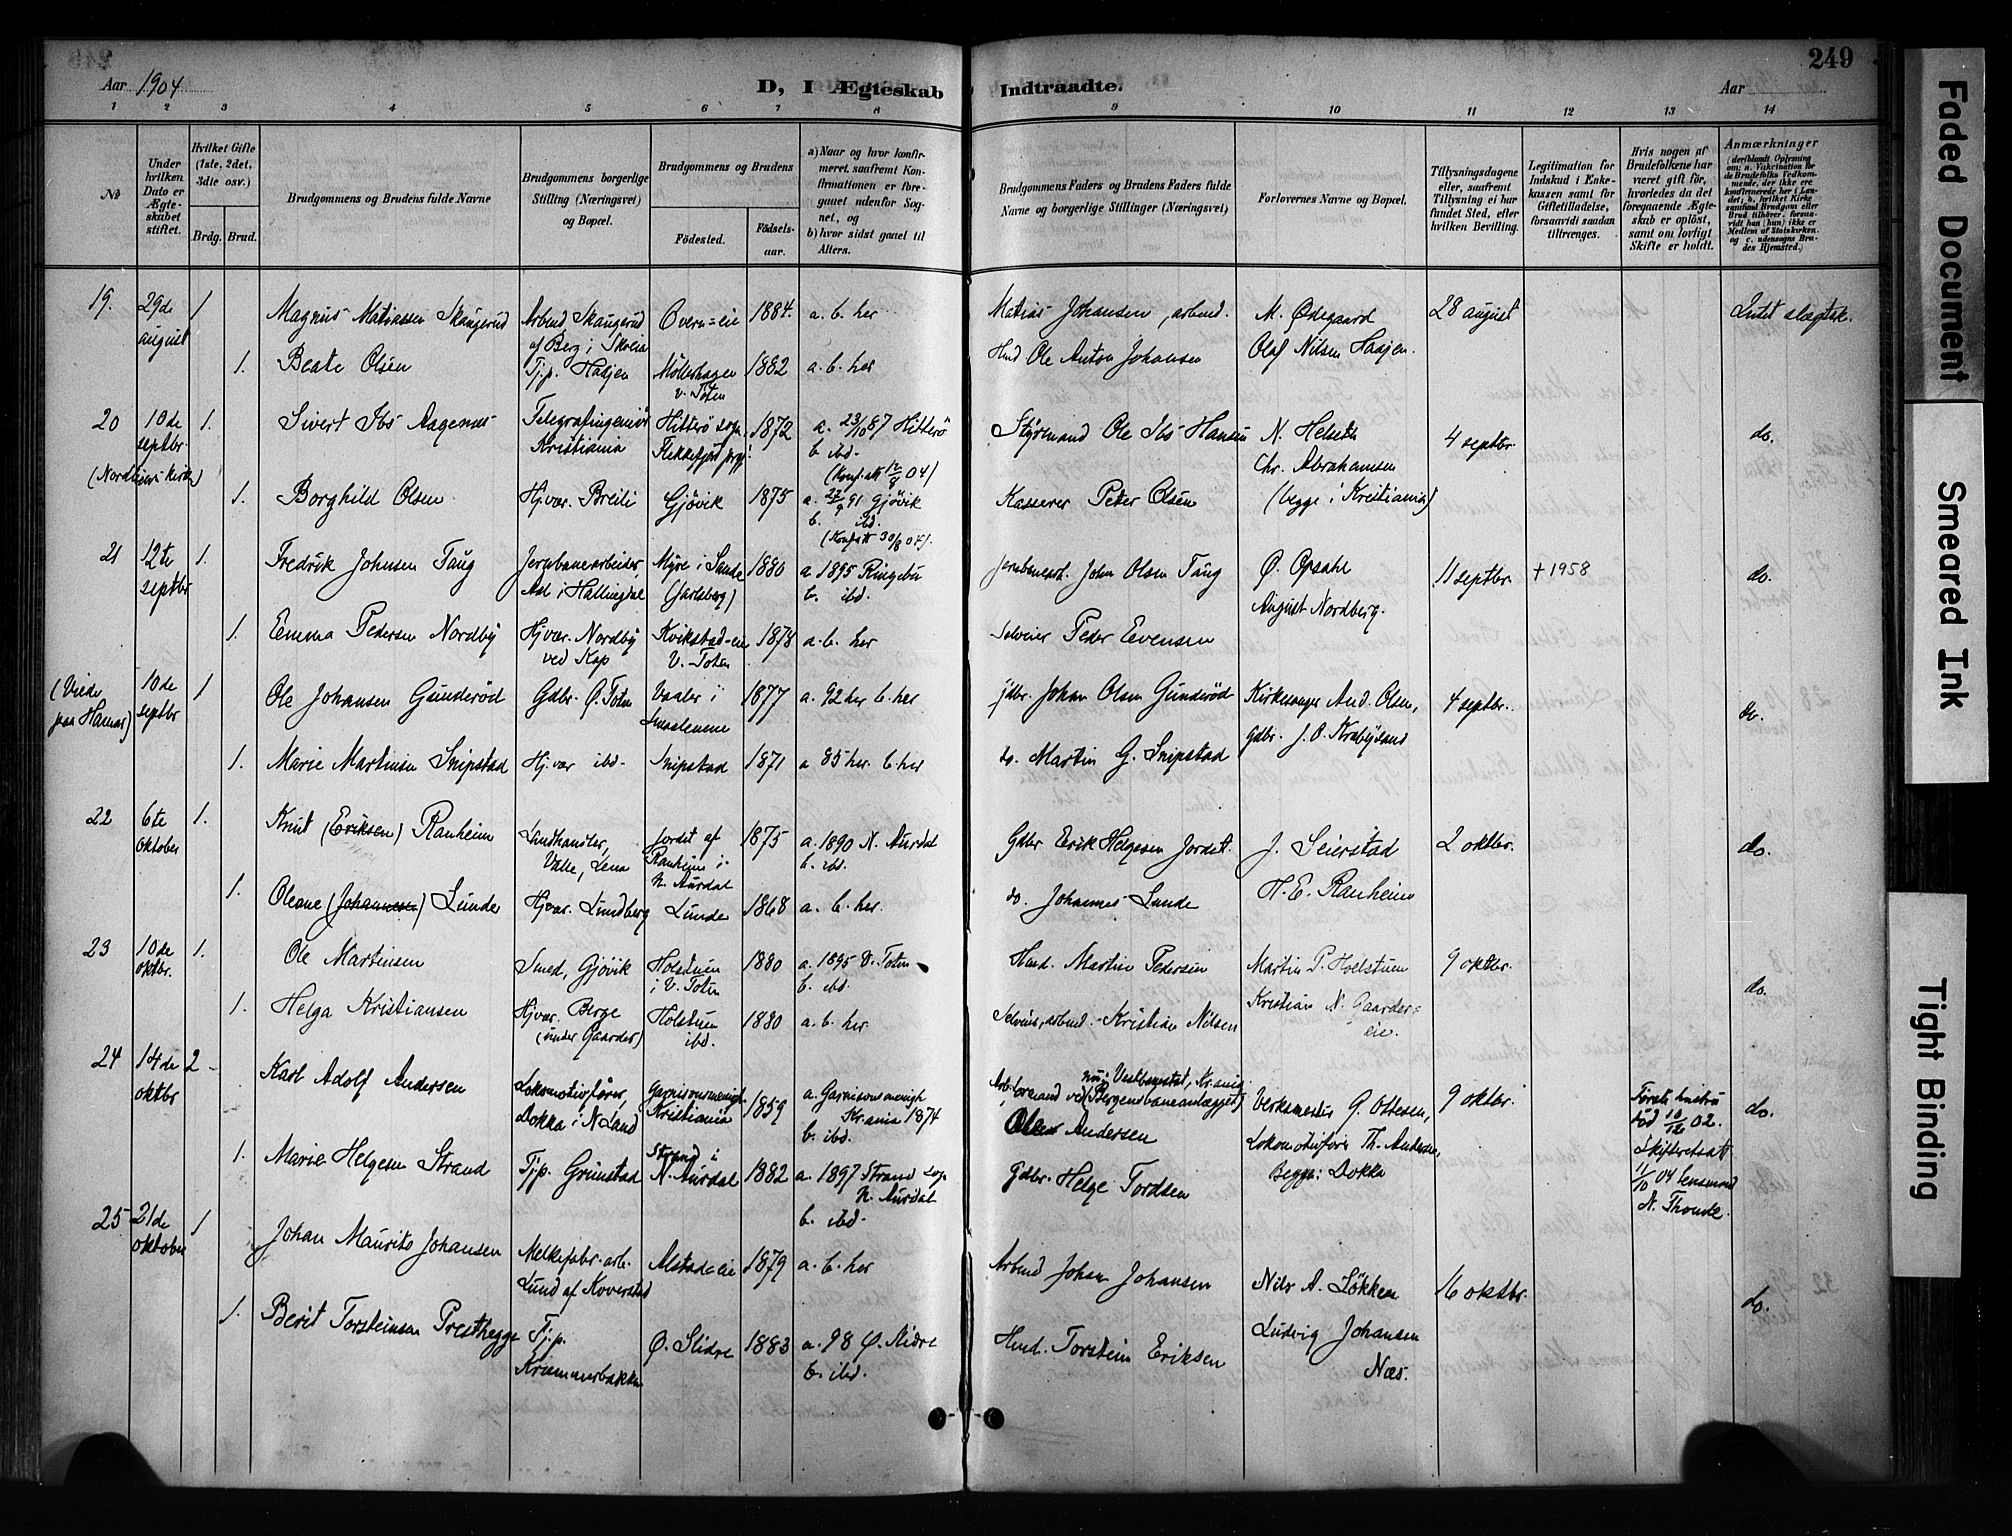 249
Aar 1904
D, I Ægteskab Indtraadte.
Aar
1 2 3 4 5 6 7 8 9 10 11 12 13 14
№
Under hvilken Dato er Ægteskabet stiftet.
Hvilket Gifte (1ste, 2det, 3die osv.)
Brdg. Brud.
Brudgommens og Brudens fulde Navne
Brudgommens borgerlige Stilling (Næringsvei) og Bopæl.
Brudgommens og Brudens
Fødested. Fødsels-aar.
a) Naar og hvor konfirmeret, saafremt Konfirmationen er foregaaet udenfor Sognet, og
b) hvor sidst gaaet til Alters.
Brudgommens Faders og Brudens Faders fulde Navne og borgerlige Stillinger (Næringsvei)
Forlovernes Navne og Bopæl.
Tillysningsdagene eller, saafremt Tillysning ei har fundet Sted, efter hvilken Bevilling.
Legitimation for Indskud i Enkekassen samt for Giftetilladelse, forsaavidt saadan tiltrænges.
Hvis nogen af Brudefolkene har været gift før, hvorledes da det foregaaende Ægteskab er opløst, samt om lovligt Skifte er holdt.
Anmærkninger
(deriblandt Oplysning om: a. Vakcination for de Brudefolks Vedkommende, der ikke ere konfirmerede her i Landet; b. hvilket Kirkesamfund Brudgom eller Brud tilhører, forsaavidt han (hun) ikke er Medlem af Statskirken, og c. udensogns Brudes Hjemsted.)
19. 29de august 1 Magnus Matiassen Skaugerud Arbmd Skaugerud af Berg i Skoien Overn=eie 1884. a. b. her Matias Johansen, arbmd. M. Ødegaard 28 august Intet slægtsk.
1. Beate Olsen Tj.p. Haajen Möllerhagen v. Toten 1882 a. b. her Hmd Ole Anton Johansen Olaf Nilsen Haajen.
20 10de septbr. 1. Sivert Ibs Aagenæs Telegrafingeniør Kristiania Hitterö sogn, Flekkefjord prgj. 1872 a. 23/10 87 Hitterö b. ibd. Styrmand Ole Ibs Hansen N. Helseth 4 septbr. do.
Chr. Abrahamsen
1. Borghild Olsen Hj.vær. Breili Gjövik 1875 a. 27/9 91 Gjövik b. ibd. (Konf.att 30/8 04). Kasserer Peter Olsen (begge i Kristiania)
21 12te septbr 1. Fredrik Johnsen Taug Jernbanearbeider, Aal i Hallingdal Myre i Sande (Jarlsberg) 1880 a. 1895 Ringebu b. ibd. Jernbanearb. John Olsen Taug O. Opsahl 11 septbr. + 1958 do.
August Nordberg.
1. Emma Pedersen Nordby Hj.vær. Nordby ved Kap Kvikstad-eie V. Toten 1878 a. b. her Selveier Peder Evensen
(Viede paa Hamar) 10de septbr 1 Ole Johansen Gunderöd Gdbr. Ø. Toten Vaaler i Smaalenene 1877 a. 92 her b. her gdbr. Johan Olsen Gunderöd Kirkesanger And. Olsen, 4 septbr. do.
Gdbr. J. O. Krabysand
1. Marie Martinsen Snipstad Hj.vær ibd. Snipstad 1871 a 85 her. b. her do. Martin G. Snipstad
22 6te oktober 1. Knut (Eriksen) Ranheim Landhandler, Valle, Lena Jordet af Ranheim i N. Aurdal 1875 a. 1890 N. Aurdal b. ibd. Gdbr Erik Helgesen Jordet. J. Seierstad 2 oktbr. do.
1. Oleane (Johannesen) Lunde Hj.vær. Lundberg Lunde 1868 a. b. her. do. Johannes Lunde H. E. Ranheim
23 10de oktbr. 1. Ole Martinsen Smed, Gjövik Holstuen i V. Toten 1880 a. 1895 V. Toten b. ibd. Hmd. Martin Pedersen Martin P. Holstuen 9 oktbr. do.
1. Helga Kristiansen Hj.vær. Berge (under Gaarder) Holstuen ibd. 1880 a. b. her Selveier, arbmd. Kristian Nilsen Kristian N. Gaarder=eie.
24 14de oktbr 2 Karl Adolf Andersen Lokomotivförer, Dokka i N. Land Garnisonsmenigh. Kristiania 1859 a. Garnisonsmenigh Kr.ania 1874 b. ibd. Arb.formand ved (nu: Vestbanestat, Kr.ania Bergensbaneanlægget) Olaus Andersen Verksmester G. Ottesen, 9 oktbr. Förste hustru död 10/12 02. Skifteretsatt 11/10 04 lensmand N. Thonde. do.
Lokomotivförer Th. Andersen, Begge: Dokka
1. Marie Helgesen Strand Tj.p. Grimstad Strand i N. Aurdal 1882 a. 1897 Strand sogn N. Aurdal b. ibd. Gdbr. Helge Tordsen
25 21de oktober 1 Johan Maurits Johansen Melkefabr. arb. Lund af Koverstad Alstad=eie 1879 a. b. her Arbmd Johan Johansen Nils A. Løkken 16 oktbr. do.
1. Berit Torsteinsen Presthegge Tj.p. Kræmmerbakken Ø. Slidre 1883 a. 98 Ø. Slidre b. ibd. Hmd. Torstein Eriksen Ludvig Johansen Næs.
Faded Document
Smeared Ink
Tight Binding